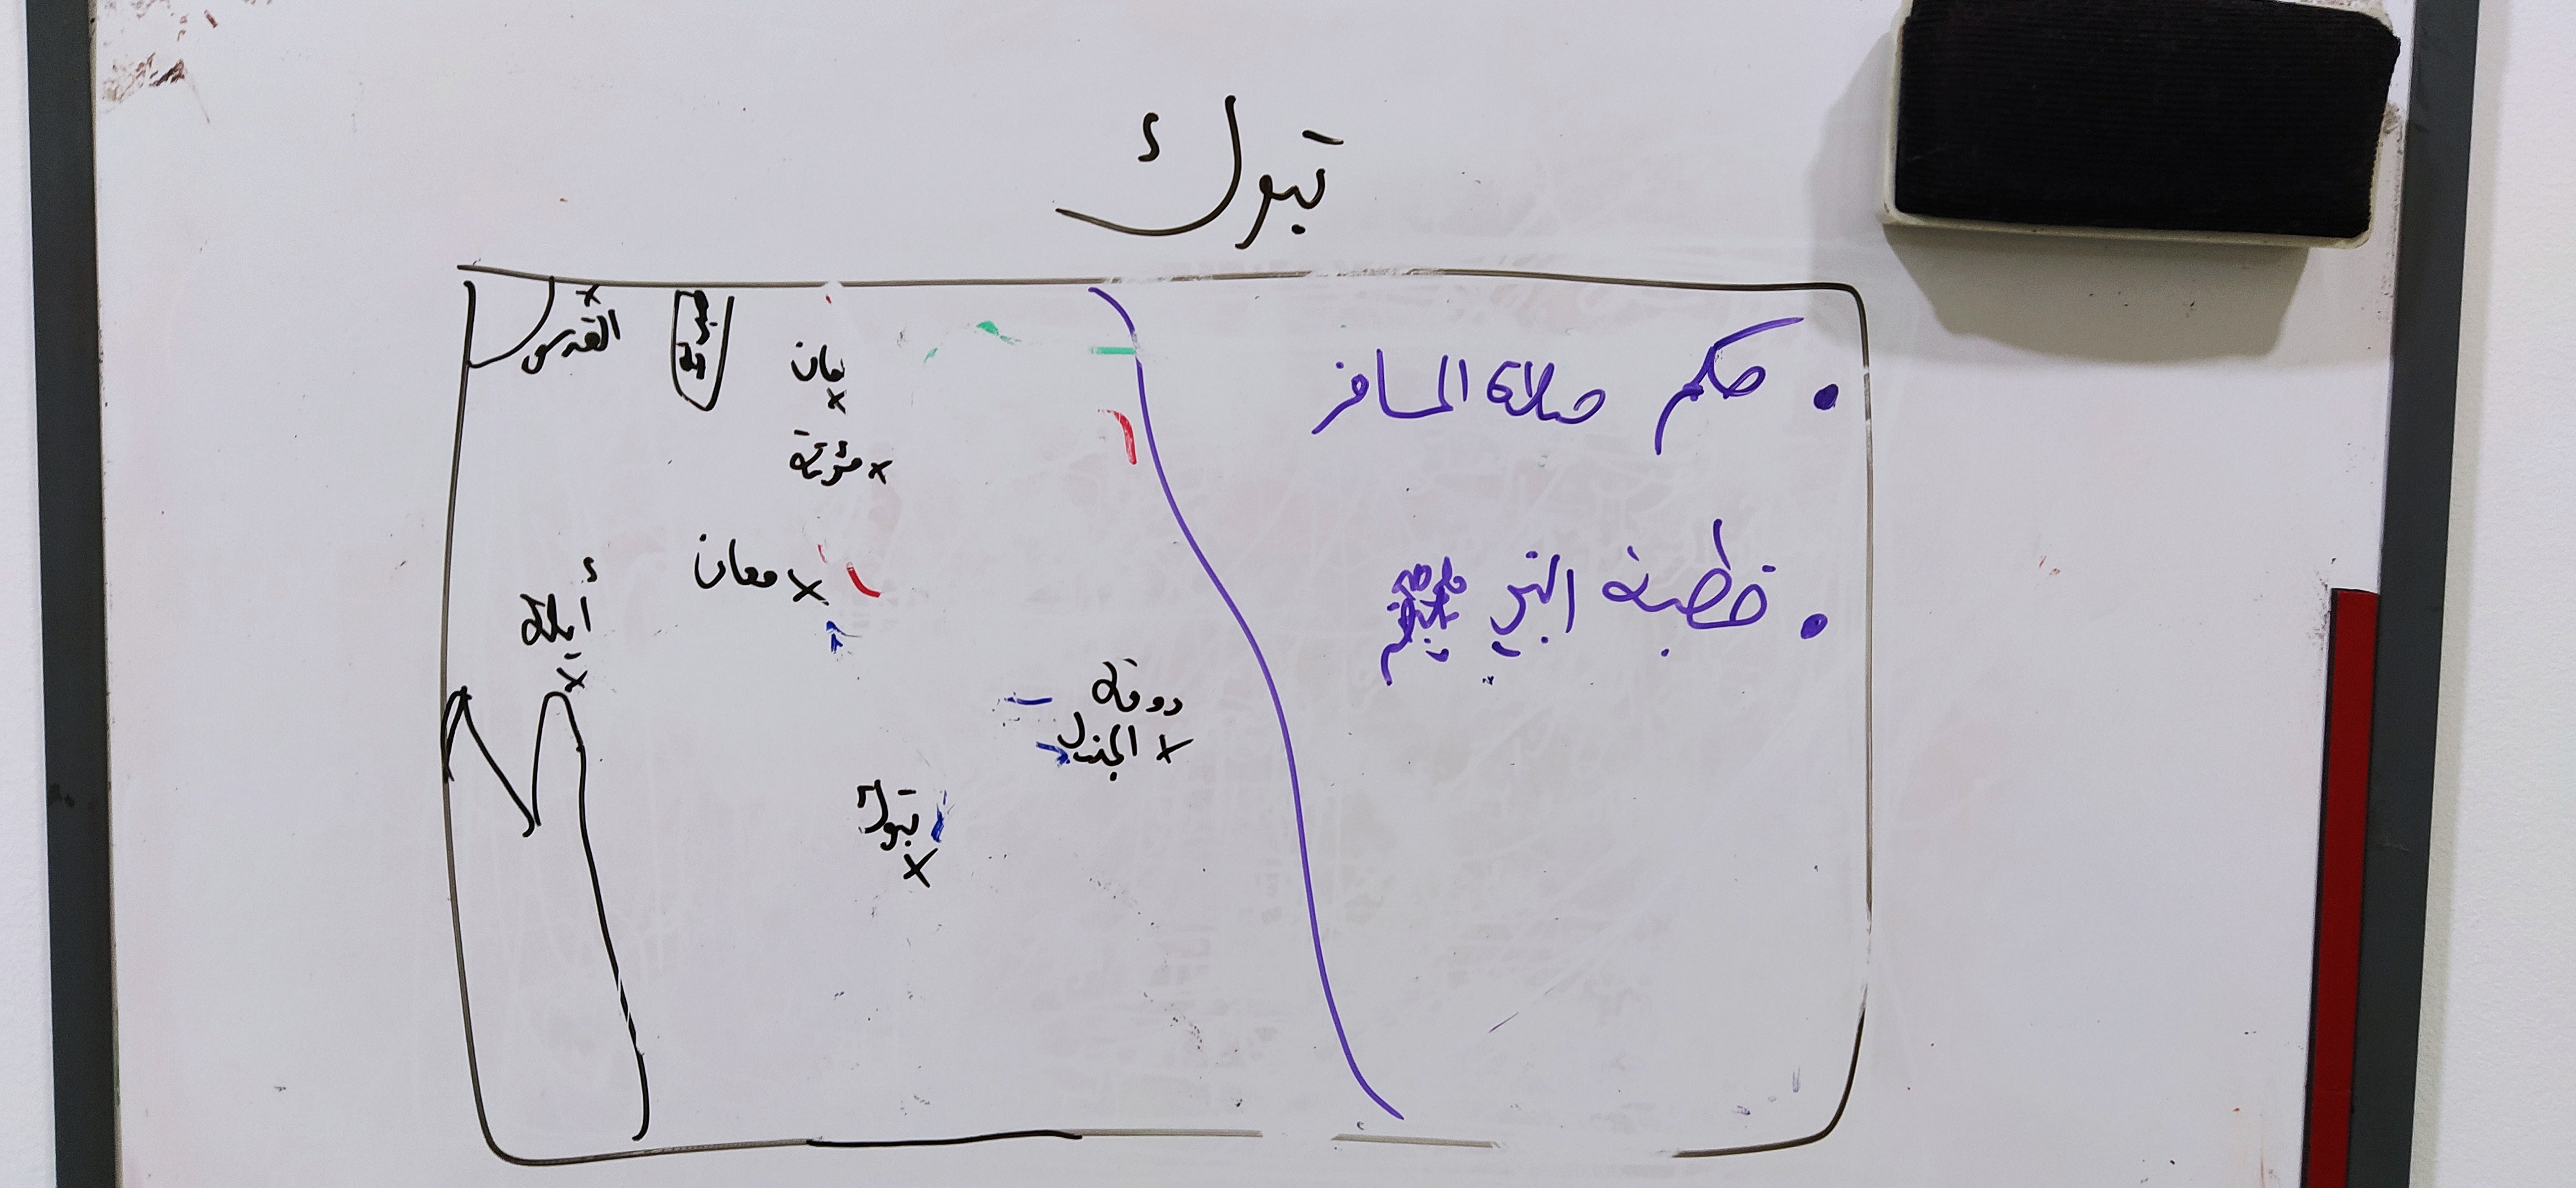 تبوك
حكم صلاة المسافر
خطبة النبي ﷺ
القدس
مؤتة
معان
أيلة
دومة
الجندل
تبوك